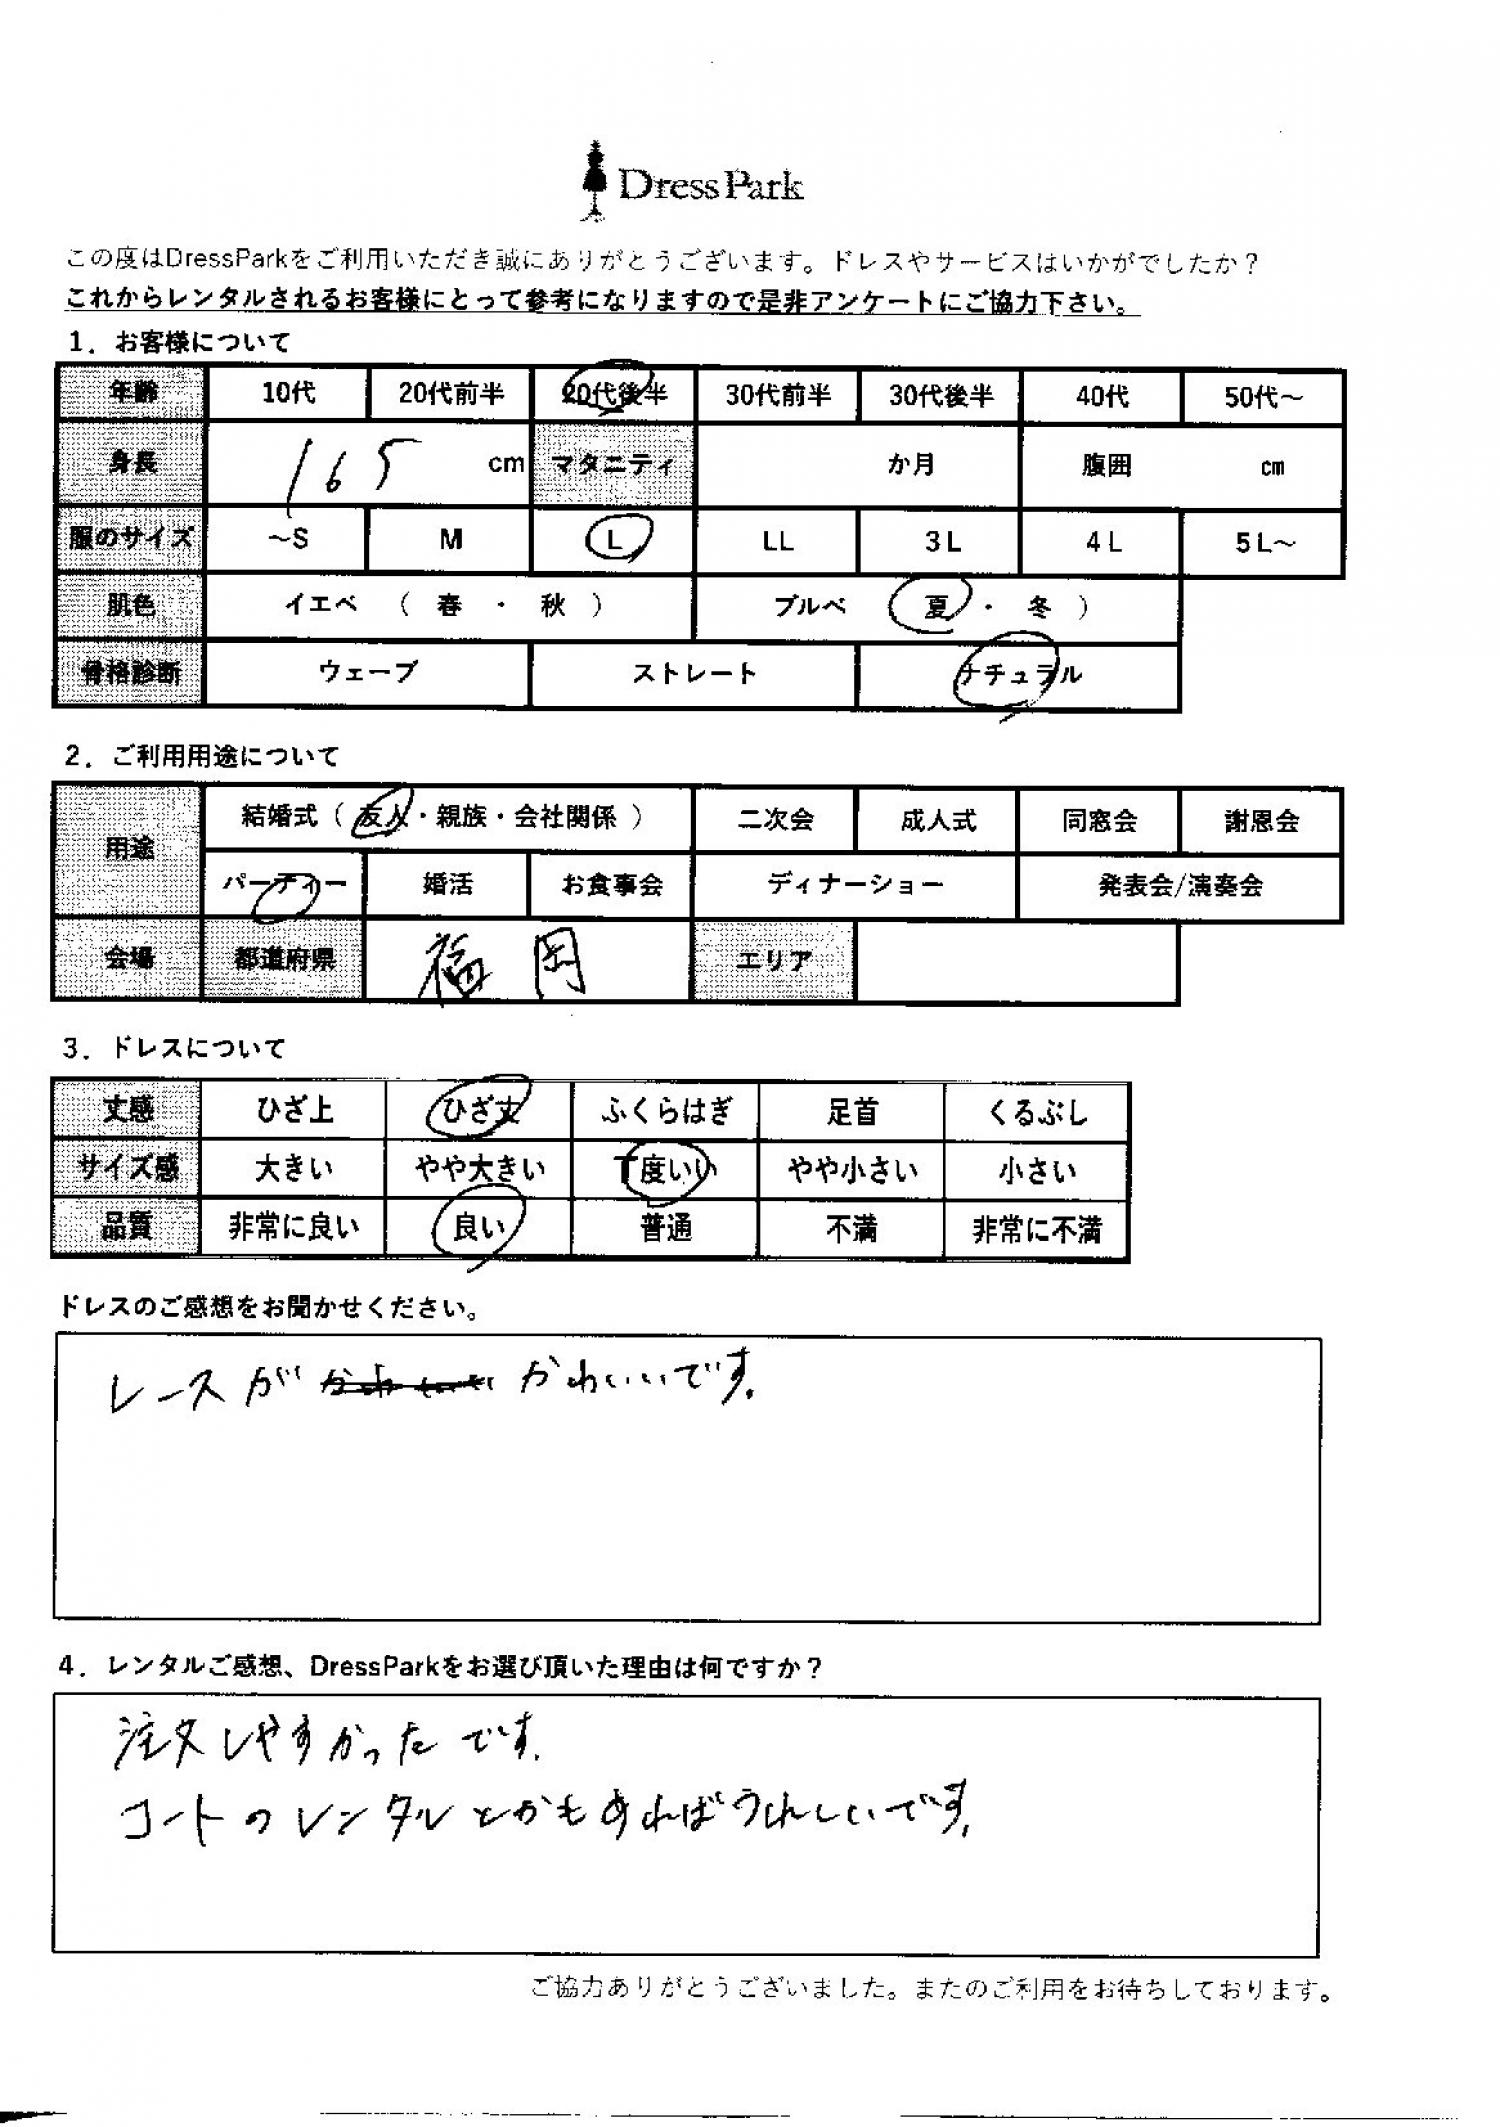 DressPark
この度はDressParkをご利用いただき誠にありがとうございます。ドレスやサービスはいかがでしたか？
これからレンタルされるお客様にとって参考になりますので是非アンケートにご協力下さい。
1．お客様について
年齢 10代 20代前半 20代後半 30代前半 30代後半 40代 50代～
身長 165 cm マタニティ か月 腹囲 cm
服のサイズ ～S M L LL 3L 4L 5L～
肌色 イエベ （ 春 ・ 秋 ） ブルベ 夏 ・ 冬 ）
骨格診断 ウェーブ ストレート ナチュラル
2．ご利用用途について
用途 結婚式（ 友人・親族・会社関係 ） 二次会 成人式 同窓会 謝恩会
パーティー 婚活 お食事会 ディナーショー 発表会/演奏会
会場 都道府県 福岡 エリア
3．ドレスについて
丈感 ひざ上 ひざ丈 ふくらはぎ 足首 くるぶし
サイズ感 大きい やや大きい 丁度いい やや小さい 小さい
品質 非常に良い 良い 普通 不満 非常に不満
ドレスのご感想をお聞かせください。
レースが かわいいです。
4．レンタルご感想、DressParkをお選び頂いた理由は何ですか？
注文しやすかったです。
コートのレンタルとかもあればうれしいです。
ご協力ありがとうございました。またのご利用をお待ちしております。